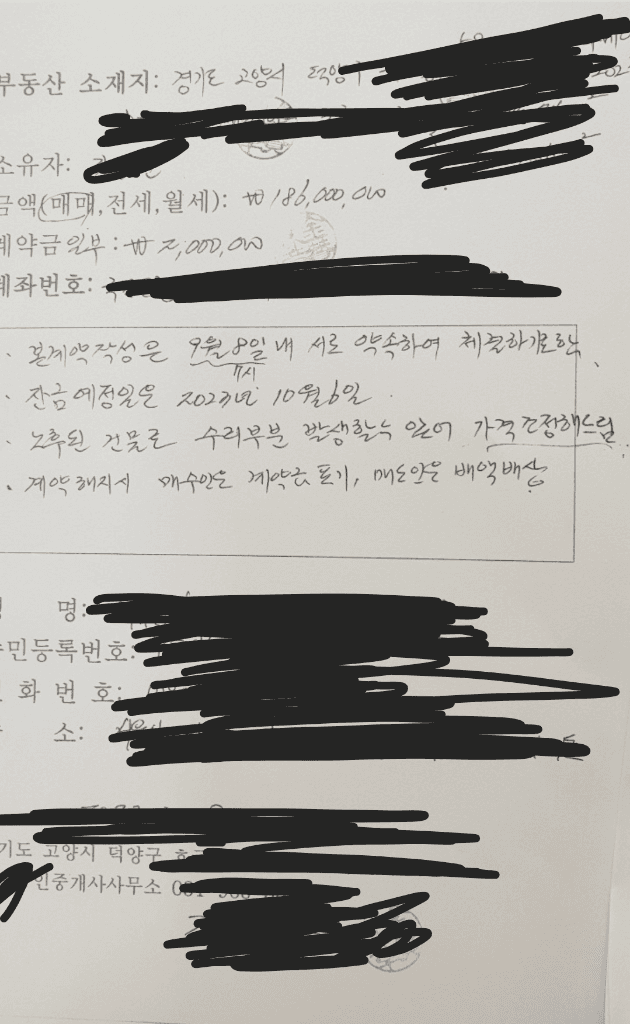 부동산 소재지: 경기도 고양시 덕양구
소유자:
금액(매매,전세,월세): ₩186,000,000
계약금일부: ₩2,000,000
계좌번호:
· 본계약작성은 9월 8일 내 서로 약속하여 체결하기로함.
· 잔금예정일은 2023년 10월 6일
· 노후된 건물로 수리부분 발생할수 있어 가격조정해드림
· 계약해지시 매수인은 계약금포기, 매도인은 배액배상
명:
민등록번호:
화 번 호:
소:
기도 고양시 덕양구
인중개사사무소